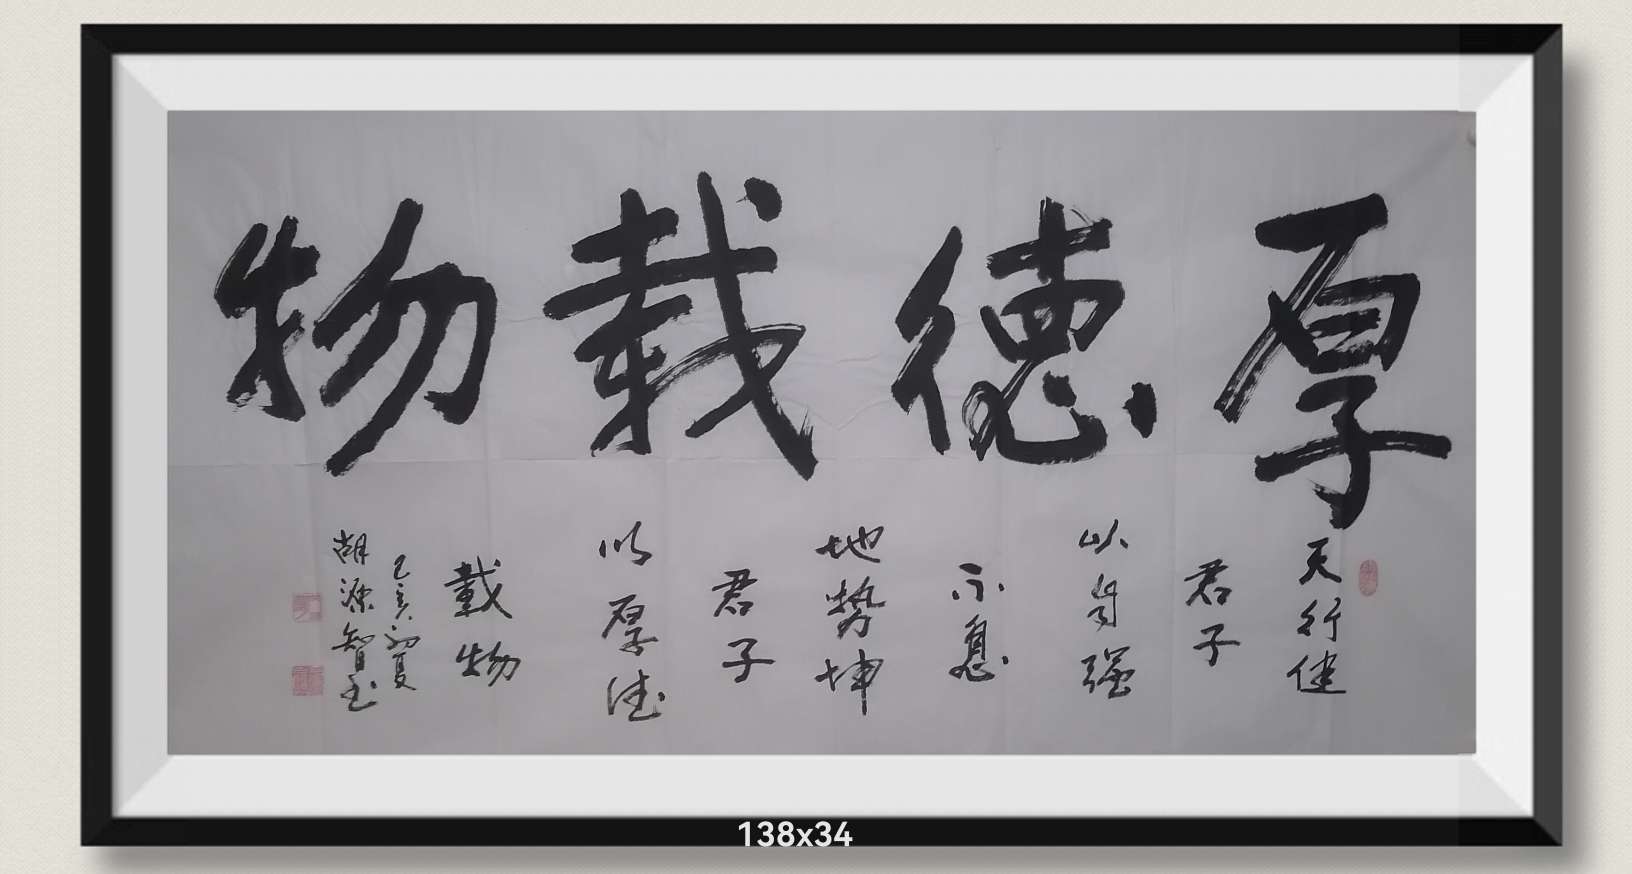 厚德载物
天行健
君子
以自强
不息
地势坤
君子
以厚德
载物
己亥初夏
胡源智书
138x34